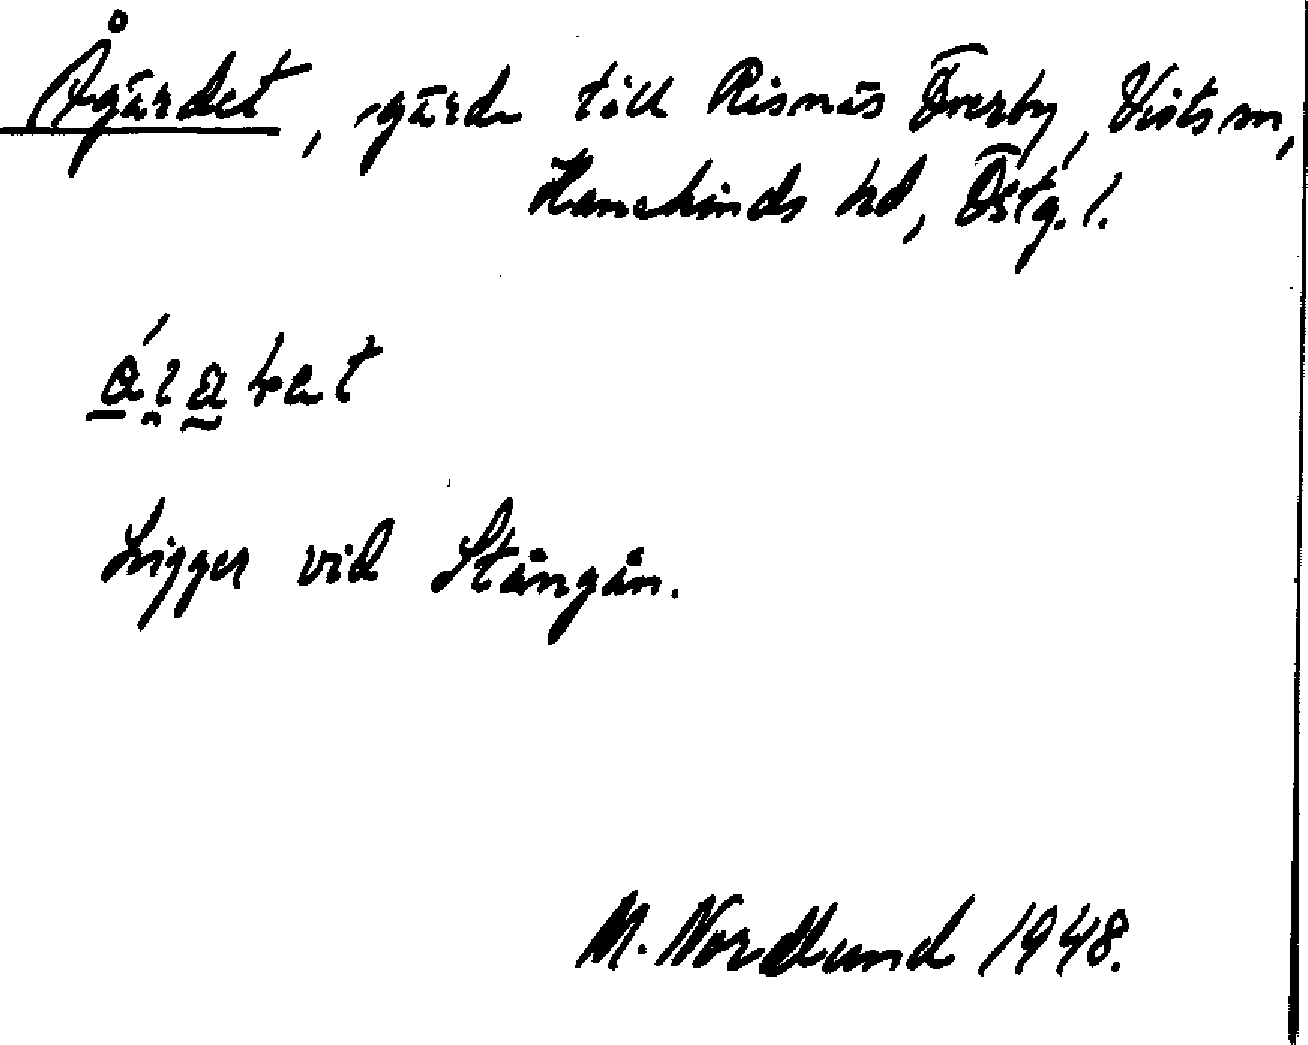 Ågärdet, gärde till Risnäs Överby, Vists sn,
Hanekinds hd, Östg. l.
Ligger vid Stångån.
M. Nordlund 1948.